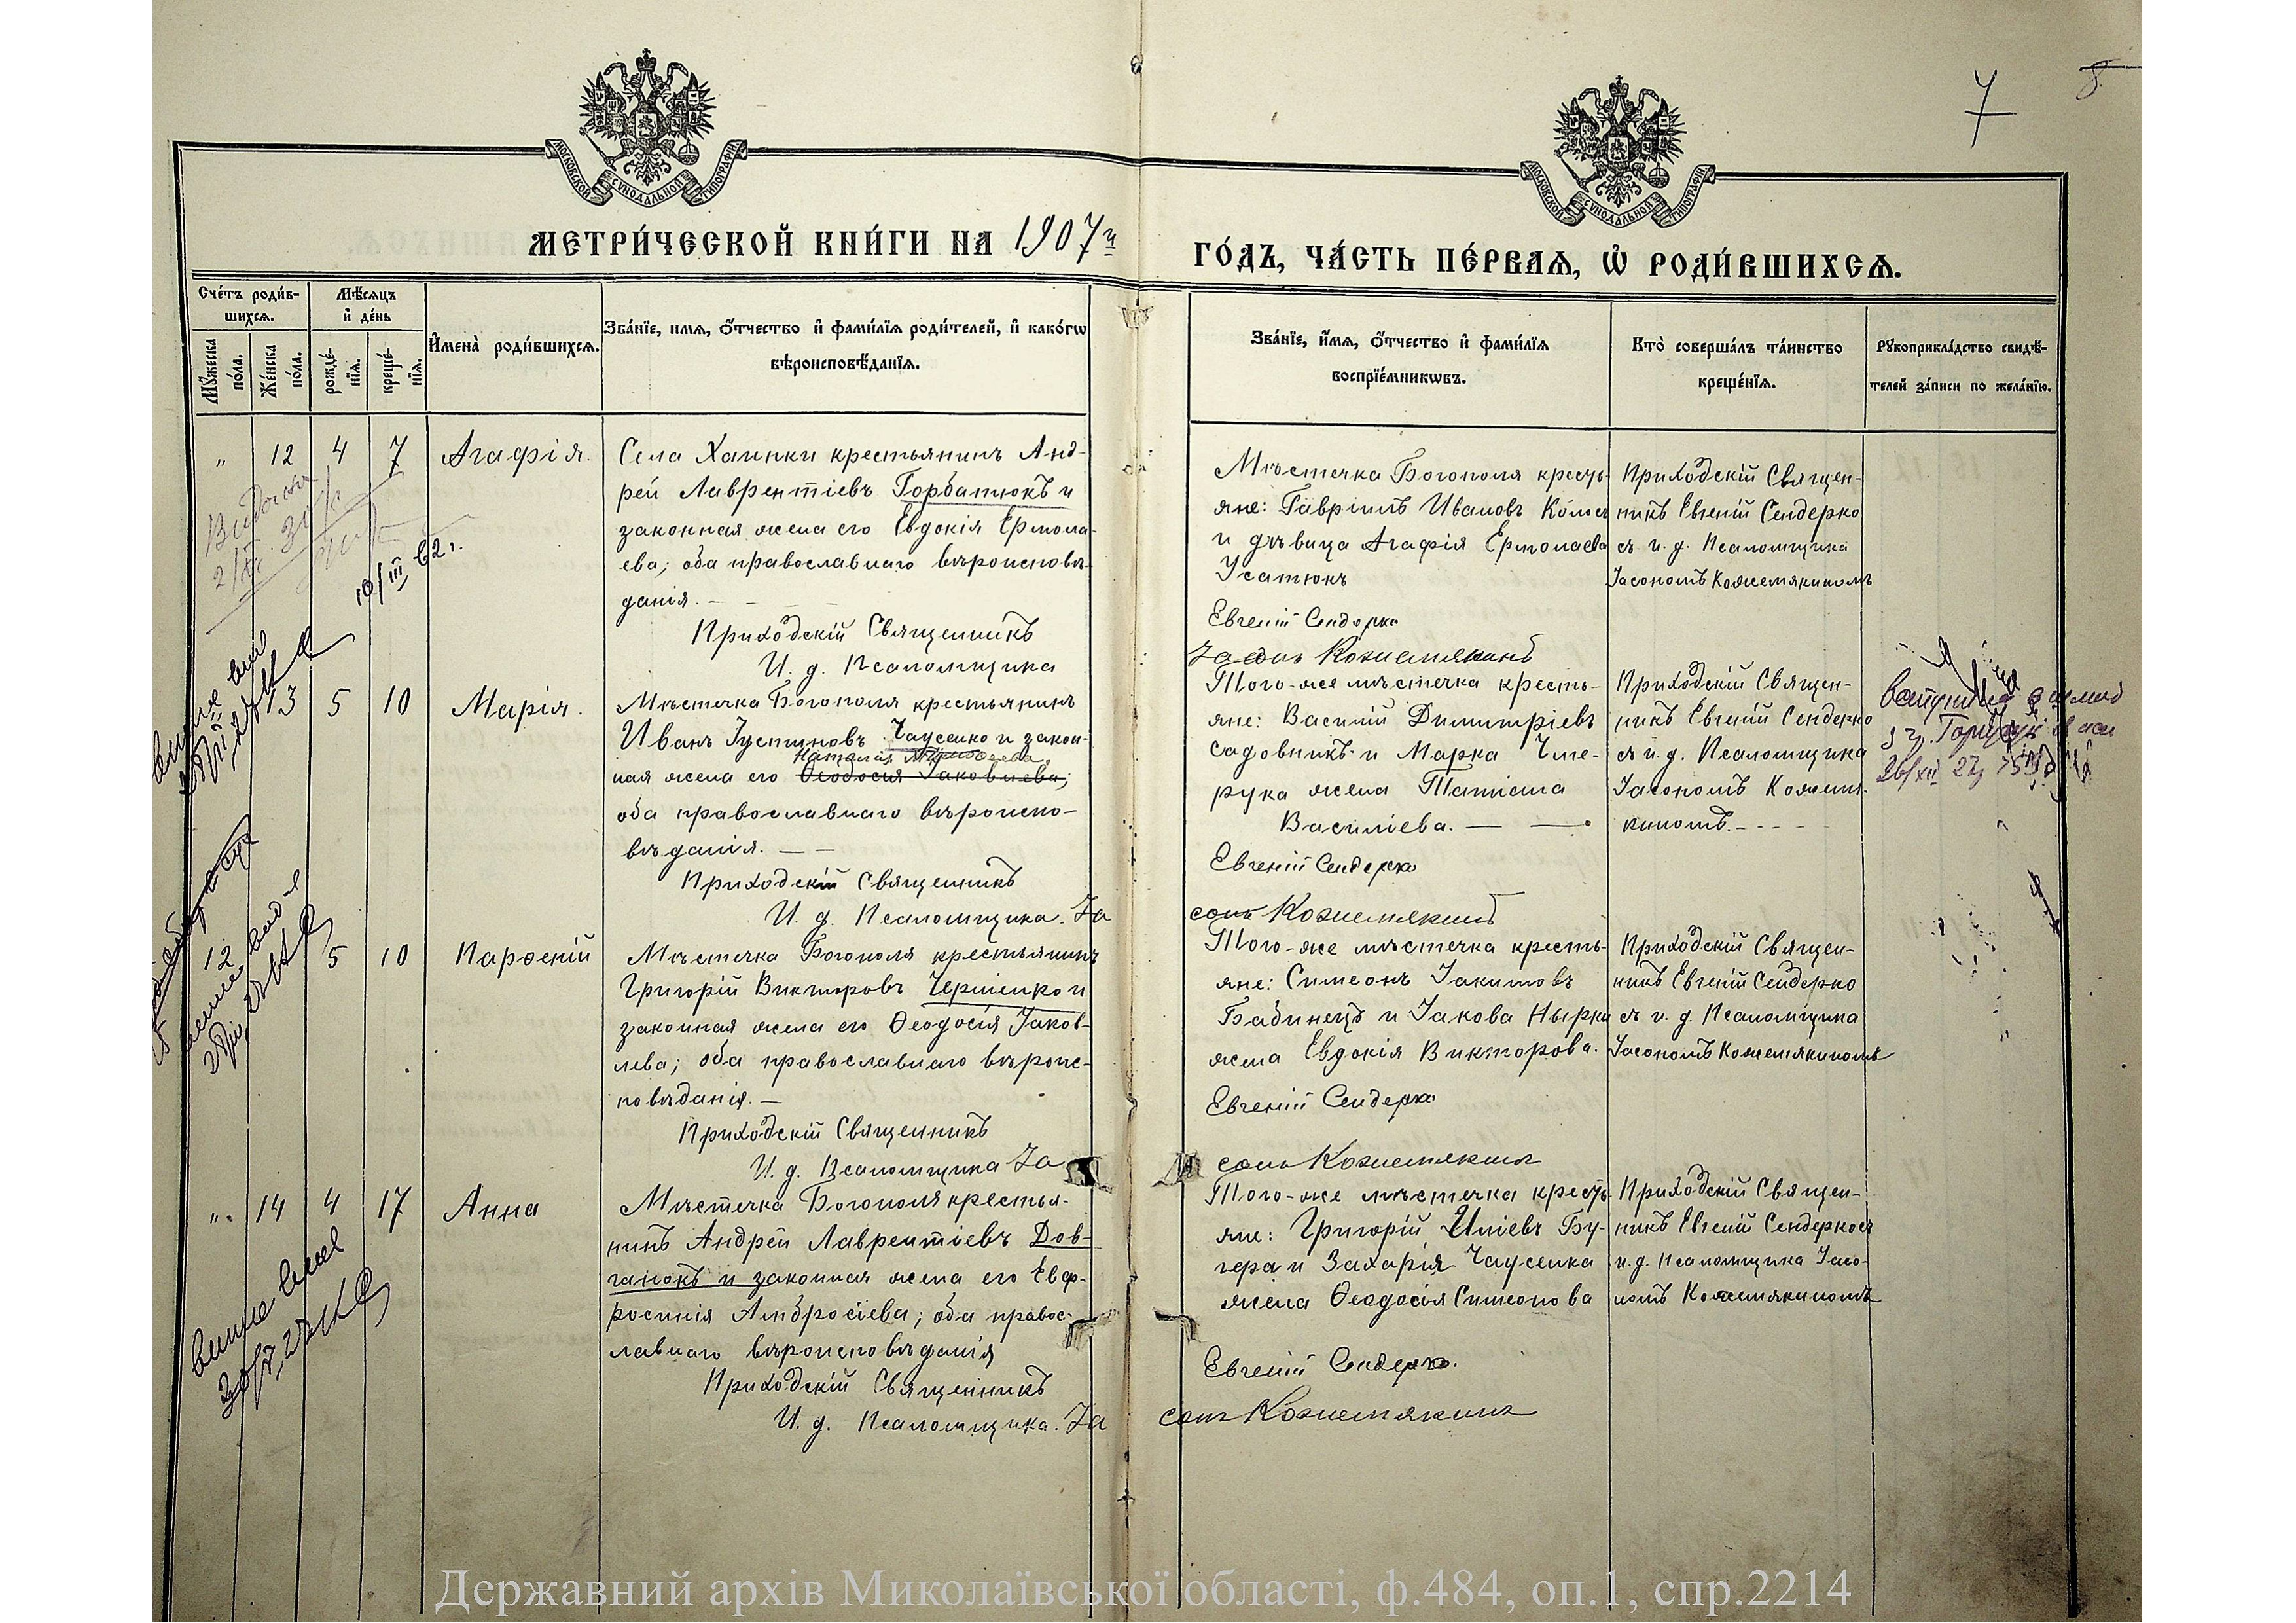 7
8.
МОСКОВСКОЙ СѴНОДАЛЬНОЙ ТИПОГРАФІИ
МОСКОВСКОЙ СѴНОДАЛЬНОЙ ТИПОГРАФІИ
МЕТРИ́ЧЕСКОЙ КНИ́ГИ НА 1907й
ГО́ДЪ, ЧА́СТЬ ПЕ́РВАѦ, Ѡ҆ РОДИ́ВШИХСѦ.
Сче́тъ роди́в-
шихсѧ.
Мѣ́сѧцъ
и҆ де́нь
Мꙋ́жеска по́ла.
Же́нска по́ла.
рожде́-
нїѧ.
креще́-
нїѧ.
И҆мена̀ роди́вшихсѧ.
Зва́нїе, имѧ, ѻ҆́тчество и҆ фами́лїѧ роди́телей, и҆ како́гѡ
вѣроисповѣ́данїѧ.
Зва́нїе, и҆́мѧ, ѻ҆́тчество и҆ фами́лїѧ
воспрїе́мникѡвъ.
Кто̀ соверша́лъ та́инство
креще́нїѧ.
Рꙋкоприкла́дство свидѣ́-
телей за́писи по жела́нїю.
" 12 4 7 Агафія.
Села Хаинки крестьянинъ Анд-
рей Лаврентіевъ Горбатюкъ и
законная жена его Евдокія Ермола-
ева; оба православнаго вѣроисповѣ-
данія. —
Приходскій Священникъ
И. д. Псаломщика
Мѣстечка Богополя кресть-
яне: Гавріилъ Ивановъ Колос
и дѣвица Агафія Ермолаева
Усатюкъ
Евгеній Сендерко
Іасонъ Кожемякинъ
Приходскій Священ-
никъ Евгеній Сендерко
съ и. д. Псаломщика
Іасономъ Кожемякиномъ
10/III 62 г.
13 5 10 Марія.
Мѣстечка Богополя крестьянинъ
Иванъ Іустиновъ Чаусенко и закон-
Наталія
ная жена его Ѳеодосія Іаковлева;
оба православнаго вѣроиспо-
вѣданія. — —
Приходскій Священникъ
И. д. Псаломщика. Іа
Того-же мѣстечка кресть-
яне: Василій Димитріевъ
Садовникъ и Марка Чме-
рука жена Татіана
Василіева. — —
Евгеній Сендерко
сонъ Кожемякинъ
Приходскій Священ-
никъ Евгеній Сендерко
съ и. д. Псаломщика
Іасономъ Кожемя-
киномъ. - - - -
12 5 10 Парѳеній
Мѣстечка Богополя крестьянинъ
Григорій Викторовъ Черненко и
законная жена его Ѳеодосія Іаков-
лева; оба православнаго вѣроис-
повѣданія. —
Приходскій Священникъ
И. д. Псаломщика Іа
Того-же мѣстечка кресть-
яне: Симеонъ Іакимовъ
Бабинецъ и Іакова Нырка
жена Евдокія Викторова.
Евгеній Сендерко
сонъ Кожемякинъ
Приходскій Священ-
никъ Евгеній Сендерко
съ и. д. Псаломщика
Іасономъ Кожемякиномъ
". 14 4 17 Анна
Мѣстечка Богополя крестья-
нинъ Андрей Лаврентіевъ Дов-
ганюкъ и законная жена его Евф-
росинія Амбросіева; оба правос-
лавнаго вѣроисповѣданія
Приходскій Священникъ
И. д. Псаломщика. Іа
Того-же мѣстечка кресть-
яне: Григорій Иліевъ Бу-
гера и Захарія Чаусенка
жена Ѳеодосія Симеонова
Евгеній Сендерко.
сонъ Кожемякинъ
Приходскій Священ-
никъ Евгеній Сендерко съ
и. д. Псаломщика Іасо-
номъ Кожемякиномъ
Державний архів Миколаївської області, ф.484, оп.1, спр.2214